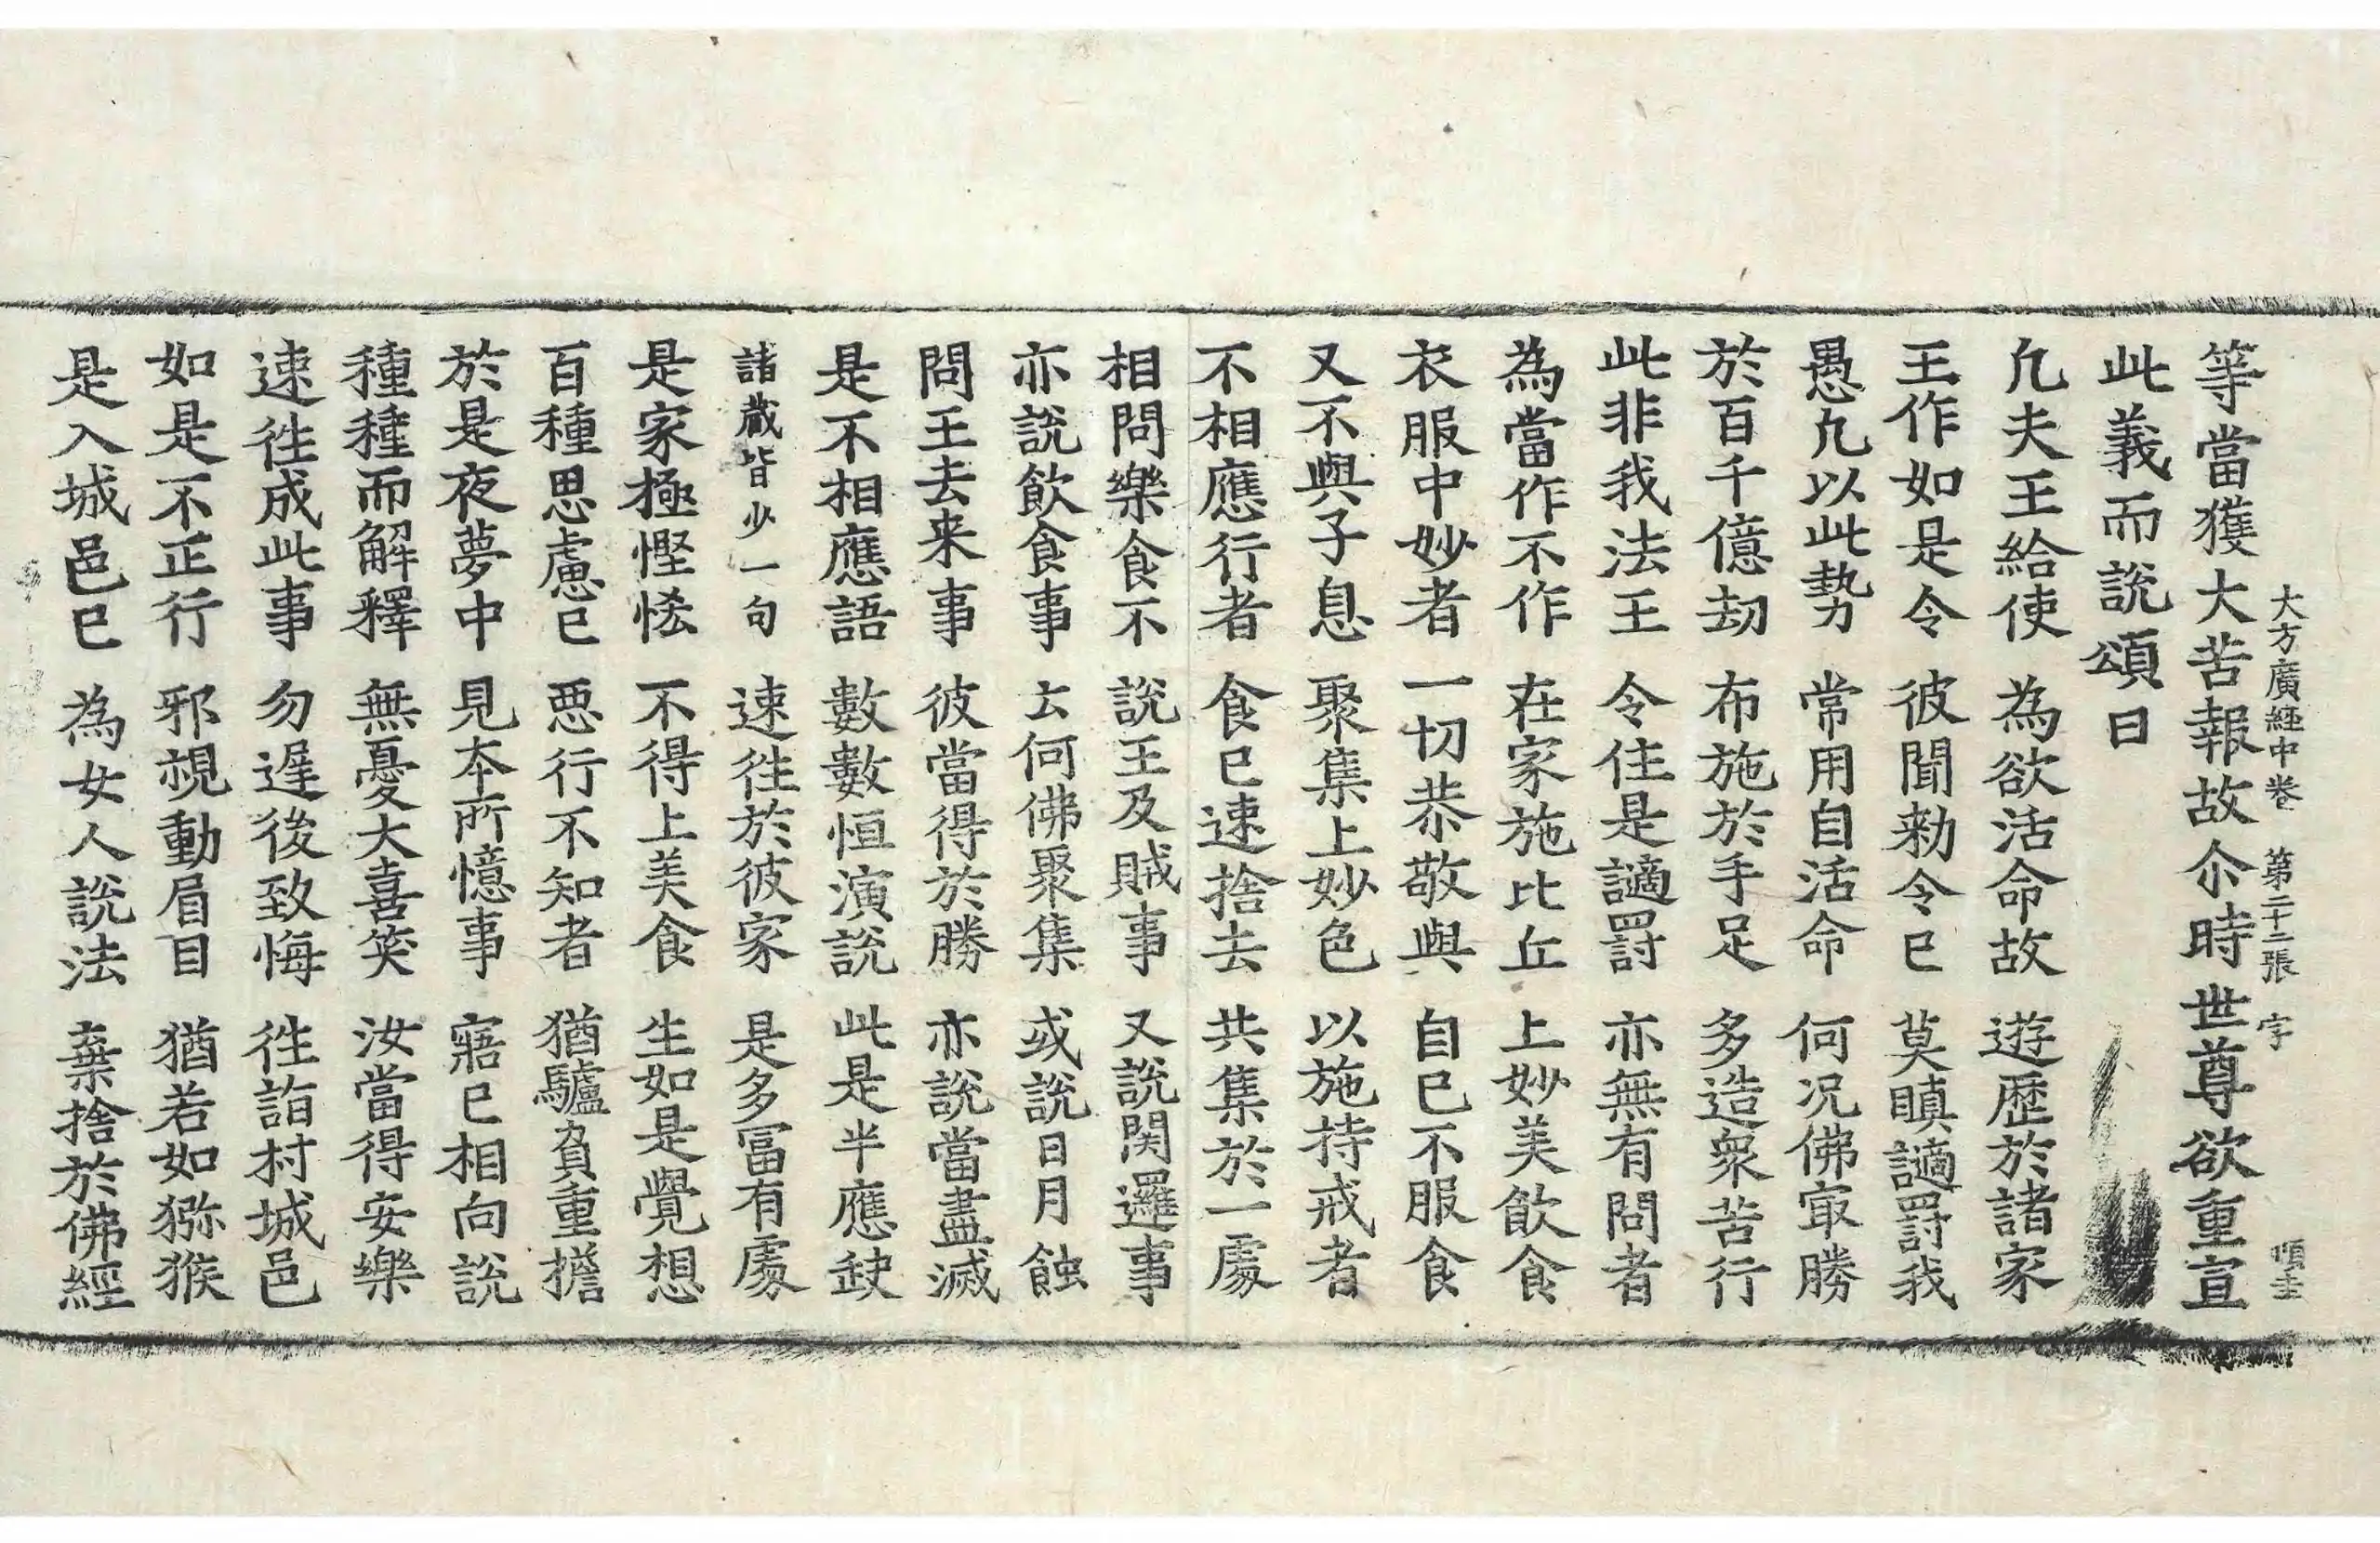 大方廣經中卷 第二十二張 字 順圭
等當獲大苦報故尒時世尊欲重宣
此義而說頌曰
凢夫王給使 為欲活命故 遊歷於諸家
王作如是令 彼聞勑令已 莫瞋讁罰我
愚凢以此勢 常用自活命 何况佛㝡勝
於百千億刼 布施於手足 多造衆苦行
此非我法王 令住是讁罰 亦無有問者
為當作不作 在家施比丘 上妙美飲食
衣服中妙者 一切恭敬與 自已不服食
又不與子息 聚集上妙色 以施持戒者
不相應行者 食已速捨去 共集於一處
相問樂食不 說王及賊事 又說関邏事
亦說飲食事 云何佛聚集 或說日月蝕
問王去来事 彼當得於勝 亦說當盡滅
是不相應語 數數恒演說 此是半應𡙇
諸蔵皆少一句 速徃於彼家 是多冨有處
是家極慳悋 不得上美食 生如是覺想
百種思慮已 悪行不知者 猶驢負重擔
於是夜夢中 見本所憶事 寤已相向說
種種而解釋 無憂大喜笑 汝當得安樂
速徃成此事 勿遲後致悔 徃詣村城邑
如是不正行 邪視動眉目 猶若如獼猴
是入城邑已 為女人說法 棄捨於佛經